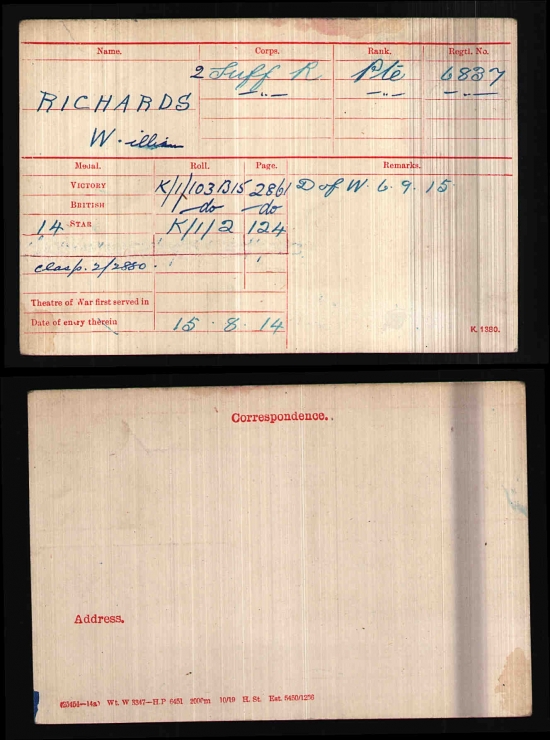 Name. Corps. Rank. Regtl. No.
2 Suff R Pte 6837
RICHARDS — „ — — „ — — „ —
W. illiam
Medal. Roll. Page. Remarks.
VICTORY K/1/103 B15 2861 D of W. 6. 9. 15
BRITISH — do — do
14 STAR K/1/2 124
clasp. 2/2880.
Theatre of War first served in
Date of entry therein 15 . 8 . 14
K. 1380.
Correspondence.
Address.
Wt. W 3347—H.P 6451 2000m 10/19 H. St. Est. 6450/1256